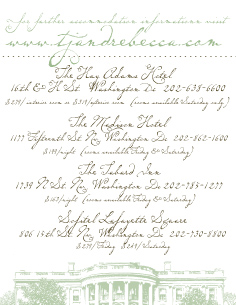 For further accommodation information visit
www.tjandrebecca.com
The Hay Adams Hotel
16th & H St. Washington Dc 202-638-6600
$279/interior room or $319/exterior room (rooms available Saturday only)
The Madison Hotel
1177 Fifteenth St Nw Washington Dc 202-862-1600
$199/night (rooms available Friday & Saturday)
The Tabard Inn
1739 N St Nw Washington Dc 202-785-1277
(rooms available Friday & Saturday)
Sofitel Lafayette Square
806 15th St Nw Washington Dc 202-730-8800
Friday Saturday